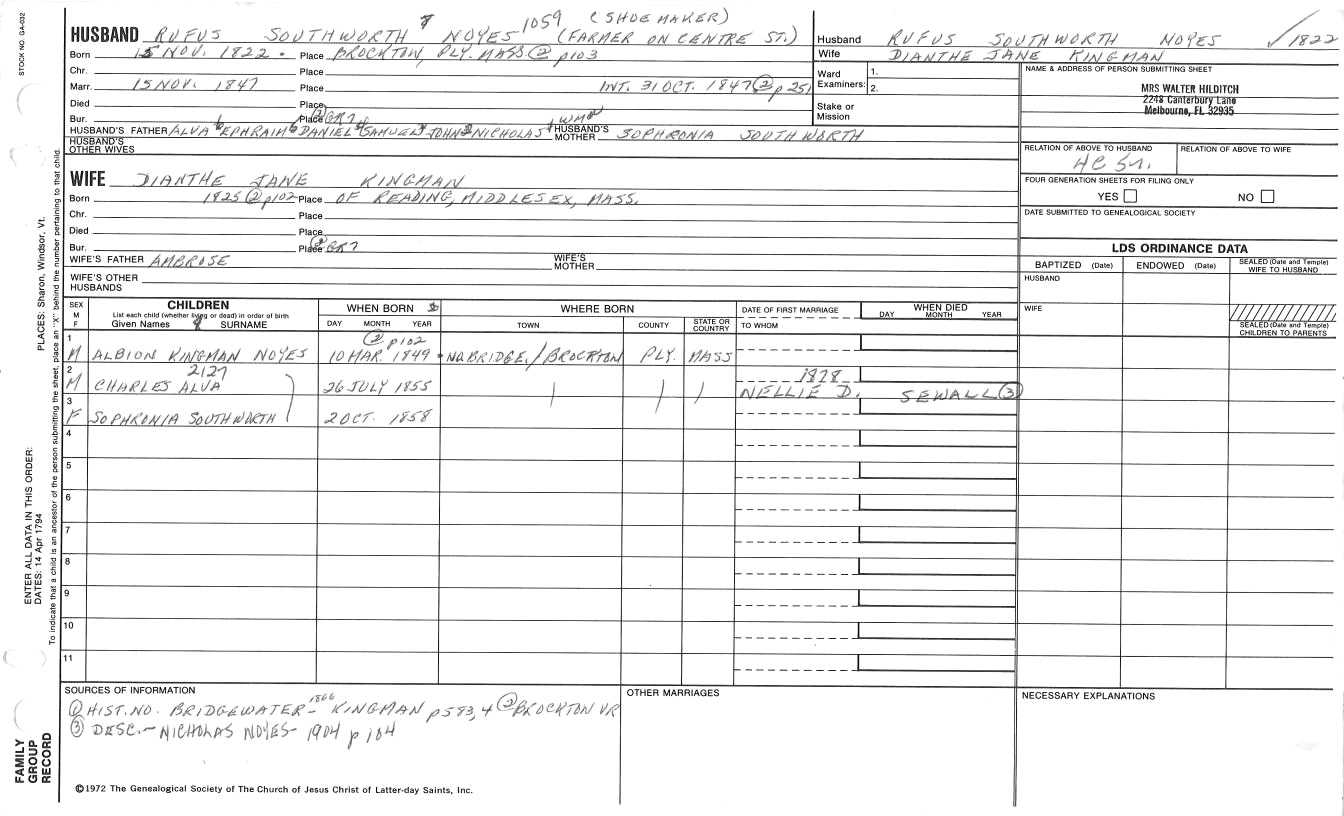 STOCK NO. GA-032
1059 (SHOEMAKER)
HUSBAND RUFUS SOUTHWORTH NOYES (FARMER ON CENTRE ST.)
Born 15 NOV. 1822 Place BROCKTON, PLY. MASS ② p103
Chr. Place
Marr. 15 NOV. 1847 Place INT. 31 OCT. 1847 ② p251
Died Place
Bur. Place ② GR7
HUSBAND'S FATHER ALVA EPHRAIM DANIEL SAMUEL JOHN NICHOLAS WM HUSBAND'S MOTHER SOPHRONIA SOUTHWORTH
HUSBAND'S OTHER WIVES
WIFE DIANTHE JANE KINGMAN
Born 1825 ② p102 Place OF READING, MIDDLESEX, MASS.
Chr. Place
Died Place
Bur. Place ② GR7
WIFE'S FATHER AMBROSE WIFE'S MOTHER
WIFE'S OTHER HUSBANDS
Husband RUFUS SOUTHWORTH NOYES ✓1822
Wife DIANTHE JANE KINGMAN
Ward Examiners: 1.
2.
Stake or Mission
NAME & ADDRESS OF PERSON SUBMITTING SHEET
MRS WALTER HILDITCH
2248 Canterbury Lane
Melbourne, FL 32935
RELATION OF ABOVE TO HUSBAND RELATION OF ABOVE TO WIFE
FOUR GENERATION SHEETS FOR FILING ONLY
YES NO
DATE SUBMITTED TO GENEALOGICAL SOCIETY
LDS ORDINANCE DATA
BAPTIZED (Date) ENDOWED (Date) SEALED (Date and Temple) WIFE TO HUSBAND
HUSBAND
WIFE
SEALED (Date and Temple) CHILDREN TO PARENTS
SEX M F
CHILDREN
List each child (whether living or dead) in order of birth
Given Names SURNAME
WHEN BORN
DAY MONTH YEAR
WHERE BORN
TOWN COUNTY STATE OR COUNTRY
DATE OF FIRST MARRIAGE
TO WHOM
WHEN DIED
DAY MONTH YEAR
② p102
1 M ALBION KINGMAN NOYES 10 MAR. 1849 NO. BRIDGE./BROCKTON PLY. MASS
2127 1878
2 M CHARLES ALVA 26 JULY 1855 NELLIE D. SEWALL ③
3 F SOPHRONIA SOUTHWORTH 2 OCT. 1858
4
5
6
7
8
9
10
11
SOURCES OF INFORMATION
① HIST. NO. BRIDGEWATER- 1866 KINGMAN p583,4 ② BROCKTON VR
③ DESC.- NICHOLAS NOYES- 1904 p 104
OTHER MARRIAGES
NECESSARY EXPLANATIONS
©1972 The Genealogical Society of The Church of Jesus Christ of Latter-day Saints, Inc.
FAMILY GROUP RECORD
ENTER ALL DATA IN THIS ORDER:
DATES: 14 Apr 1794
PLACES: Sharon, Windsor, Vt.
To indicate that a child is an ancestor of the person submitting the sheet, place an "X" behind the number pertaining to that child.